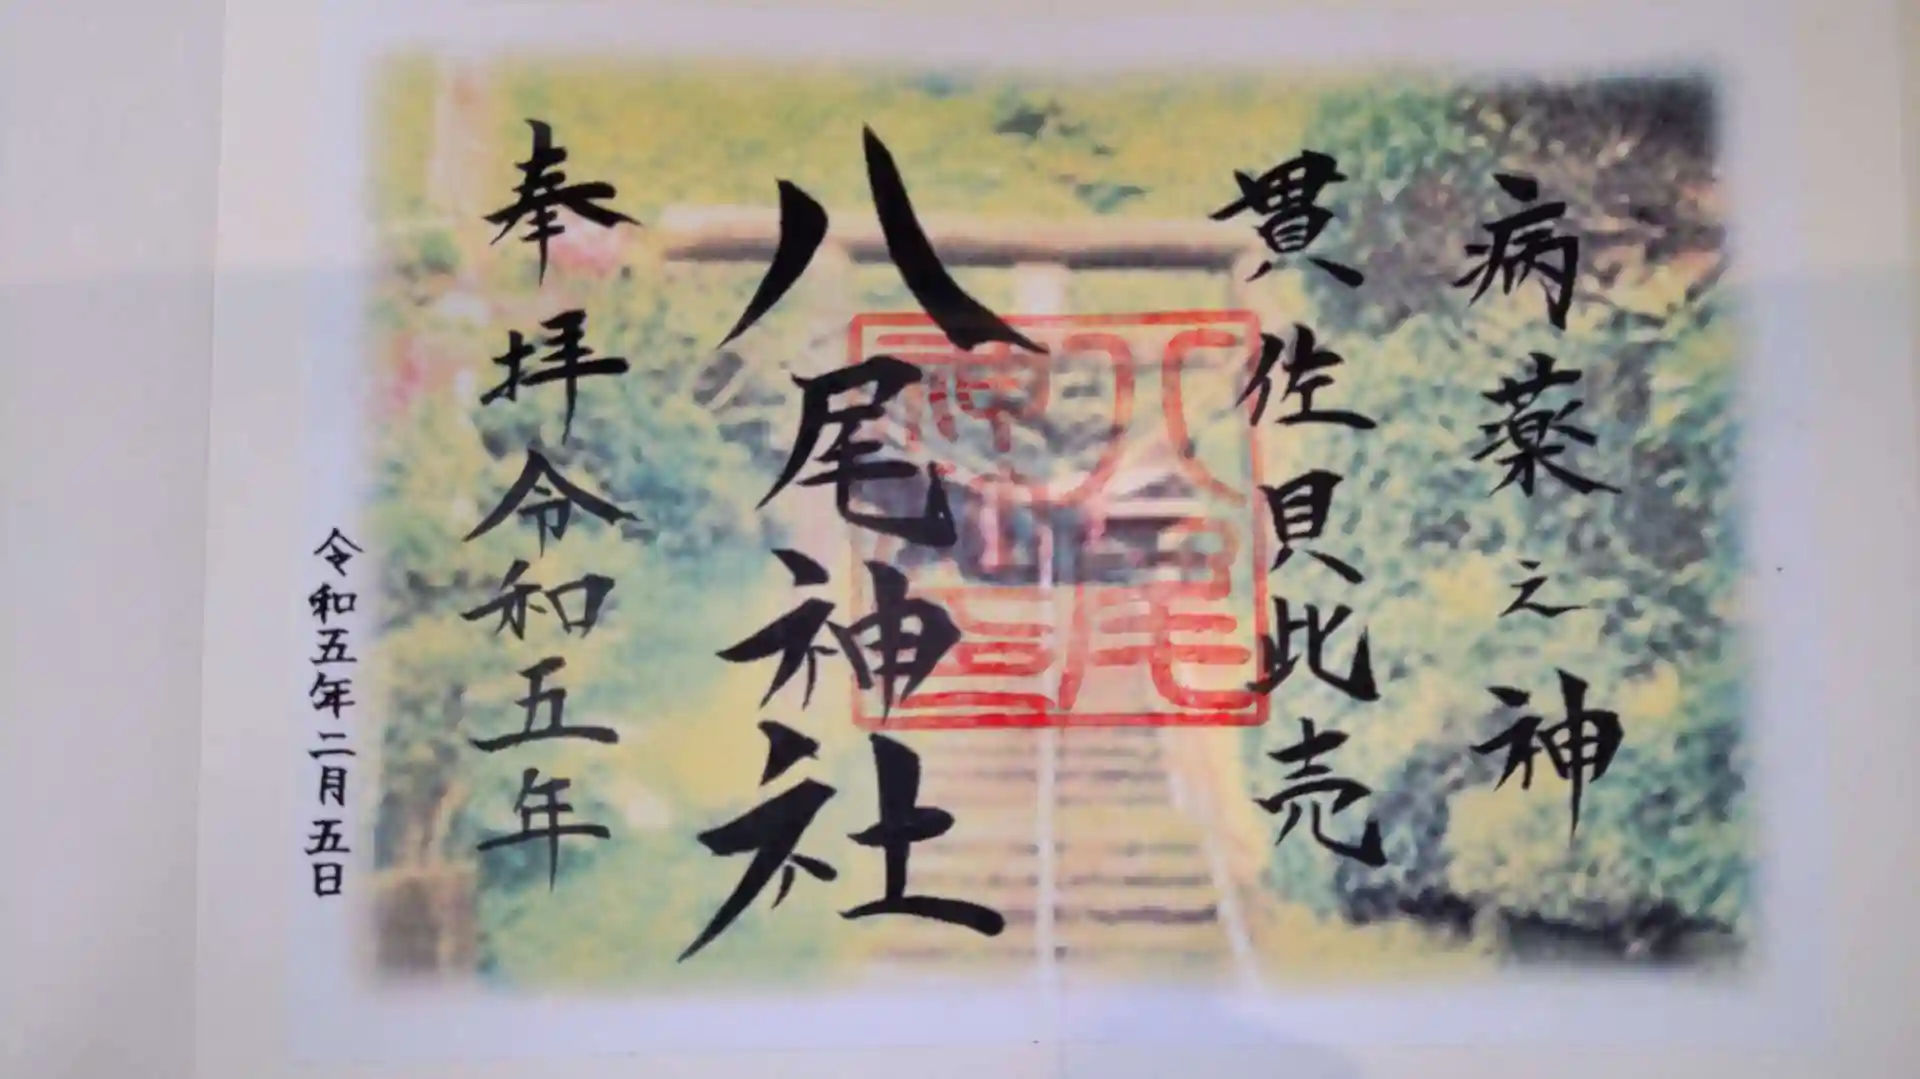 病薬之神
貫佐貝比売
八尾神社
奉拝令和五年
令和五年二月五日
八尾
神社